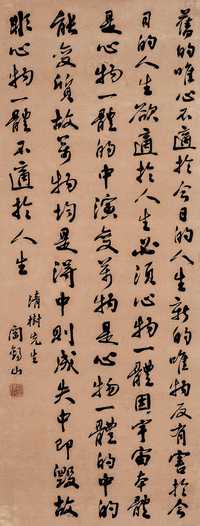 舊的唯心不適於今日的人生新的唯物反有害於今
日的人生欲適於人生必須心物一體因宇宙本體
是心物一體的中演變萬物是心物一體的中的
能變質故萬物均是得中則成失中即毀故
離心物一體不適於人生
清樹先生
閻錫山